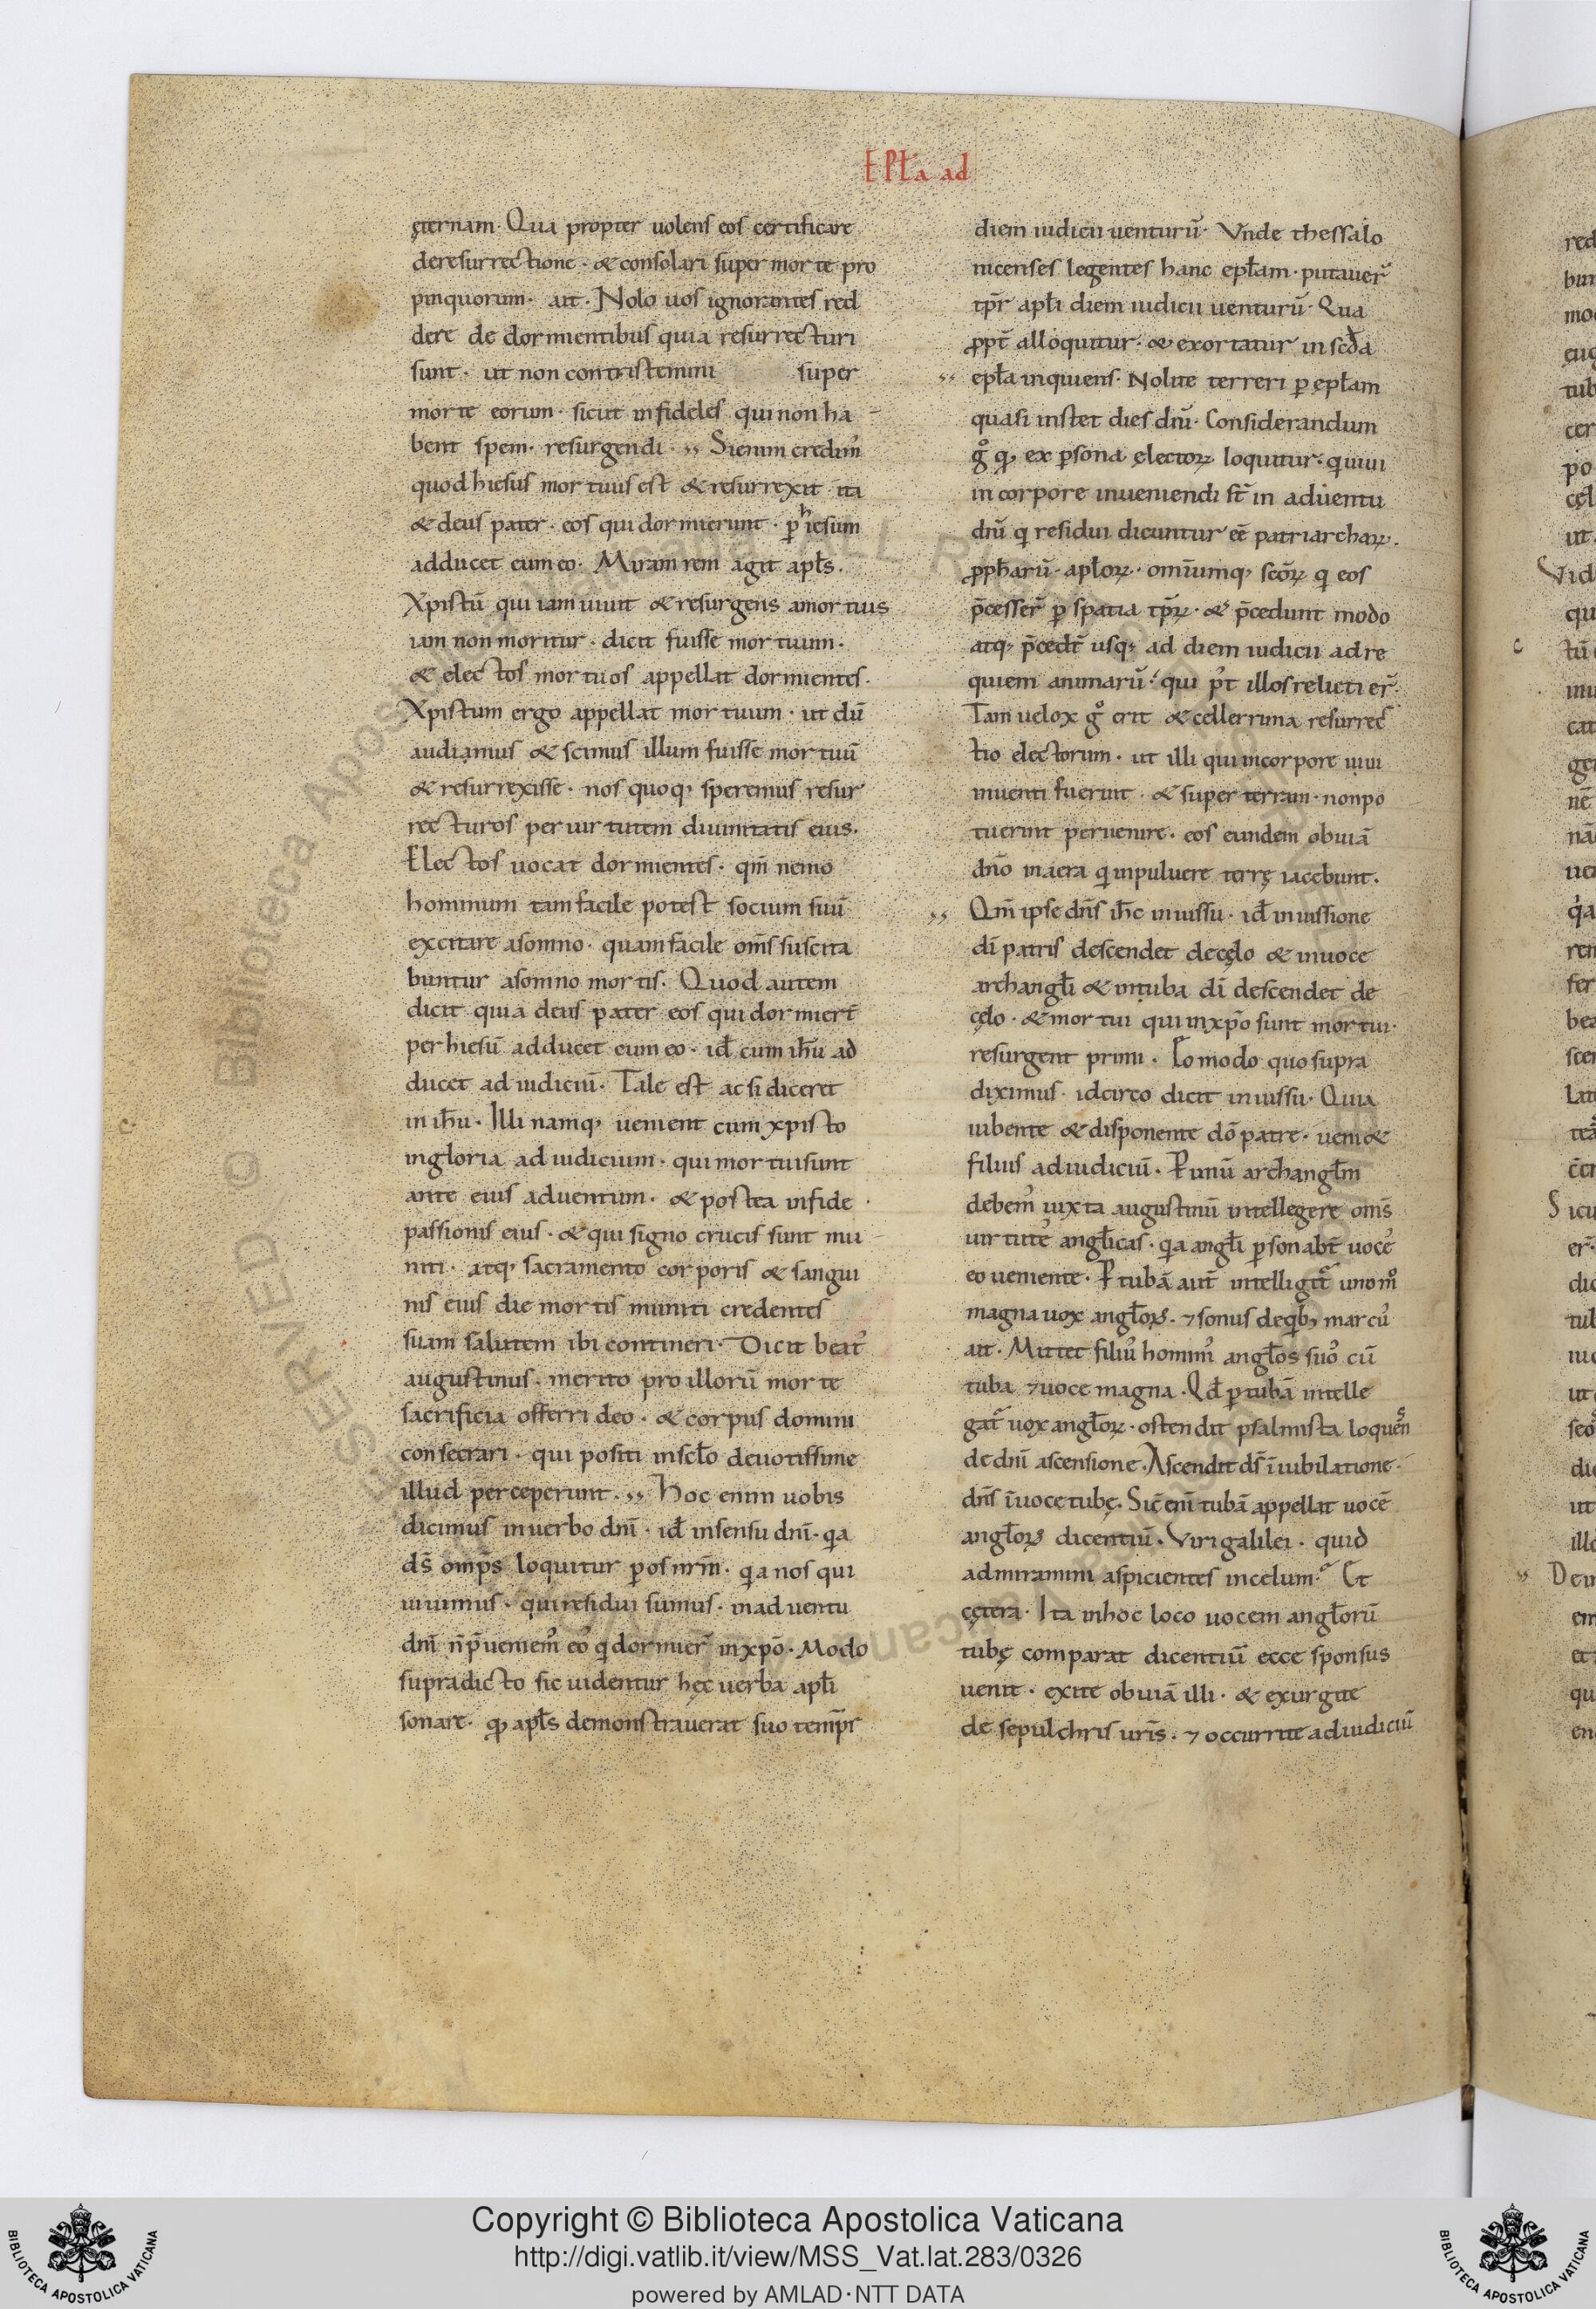 EPł̄a ad
ęternam· Qua propter uolens eos certificare
deresurrectione · & consolari super morte pro
pinquorum· ait· Nolo uos ignorantes red
dere de dormientibus quia resurrecturi
sunt· ut non contristemini super
morte eorum· sicut infideles qui non ha
bent spem· resurgendi· ,, Si enim credim᾽
quod hiesus mortuus est & resurrexit ita
& deus pater· eos qui dormierunt· p̱ hiesum
adducet cum eo· Miram rem agit apłs.
Xpistū qui iam uiuit & resurgens amortuis
iam non moritur· dicit fuisse mortuum·
& electos mortuos appellat dormientes·
Xpistum ergo appellat mortuum· ut dū
audiamus & scimus illum fuisse mortuū
& resurrexisse· nos quoq; speremus resur
recturos per uirtutem diuinitatis eius.
Electos uocat dormientes· qm̄ nemo
hominum tam facile potest socium suū
excitare asomno· quam facile om̄s suscita
buntur asomno mortis. Quod autem
dicit quia deus pater eos qui dormiert̄
per hiesū adducet cum eo· id̄ cum ih̄u ad
ducet ad iudiciū· Tale est ac si diceret
in ih̄u· Illi namq; uenient cum xpisto
ingloria ad iudicium· qui mortui sunt
ante eius aduentum· & postea infide
passionis eius· & qui signo crucis sunt mu
niti· atq; sacramento corporis & sangui
nis eius die mortis muniti credentes
suam salutem ibi contineri· Dicit beat᾽
augustinus· merito pro illorū morte
sacrificia offerri deo· & corpus domini
consecrari· qui positi inscło deuotissime
illud perceperunt. ,, Hoc enim uobis
dicimus inuerbo dnī· id̄ insensu dnī· qa
ds̄ omps̄ loquitur p̱ os nrm̄· qa nos qui
uiuimus· qui residui sumus· inaduentu
dnī n̄ p̄ueniem᾽ eo᾽ q dormuer̄ inxpō· Modo
supradicto sic uidentur hęc uerba apłi
sonare· qꝫ apłs demonstrauerat suo temp̄r
diem iudicii uenturū· Vnde thessalo
nicenses legentes hanc epłam· putauer̄
tp̄r apłi diem iudicii uenturū· Qua
ꝓpt̄ alloquitur· & exortatur in scd̄a
,, epła inquiens· Nolite terreri p̱ epłam
quasi instet dies dnī· Considerandum
g° qꝫ ex p̱sona ęlectoꝝ loquitur· qui uiui
in corpore inueniendi st̄ in aduentu
dnī q residui dicuntur eē patriarchaꝝ.
ꝓph̄arū· apłoꝝ· omīumq; scōꝝ q eos
p̄cesser̄ p̱ spatia tp̄ꝝ· & p̄cedunt modo
atq; p̄cedt̄ usq; ad diem iudicii ad re
quiem animarū· qui p᾽t illos relicti er̄·
Tam uelox g° erit & cellerrima resurrec
tio electorum· ut illi qui incorpore uiui
inuenti fuerint· & super terram· non po
tuerint peruenire· eos eundem obuiā
dnō inaera q inpuluere terrę iacebunt.
,, Qm̄ ipse dn̄s ih̄c iniussu· id̄ iniussione
dī patris descendet decęlo & inuoce
archangłi & intuba dī descendet de
cęlo· & mortui qui inxpō sunt mortui·
resurgent primi· Eo modo quo supra
diximus· idcirco dicit iniussu· Quia
iubente & disponente dō patre· ueni&
filius ad iudiciū· P̱ unū archangłm
debem᾽ iuxta augustinū intellegere om̄s
uirtute᾽ angłicas· qa angłi p̱sonabt̄ uoce᾽
eo ueniente· P̱ tubā aut̄ intelligit̄ uno m°
magna uox angłoꝝ· ⁊ sonus deqb; marcu᾽
ait· Mittet filiu᾽ homini᾽ angłos suo᾽ cū
tuba ⁊ uoce magna· Qd̄ p̱ tubā intelle
gat̄ uox angłoꝝ· ostendit psalmista loquēns
de dnī ascensione· Ascendit ds̄ ī iubilatione·
dn̄s ī uoce tubę· Sic enī tubā appellat uocē
angłoꝝ dicentiū· Viri galilei· quid
admiramini aspicientes incelum· Et
cętera· Ita inhoc loco uocem angłorū
tubę comparat dicentiū ecce sponsus
uenit· exite obuiā illi· & exurgite
de sepulchris uris̄· ⁊ occurrite ad iudiciū
Copyright © Biblioteca Apostolica Vaticana
http://digi.vatlib.it/view/MSS_Vat.lat.283/0326
powered by AMLAD·NTT DATA
BIBLIOTECA APOSTOLICA VATICANA
BIBLIOTECA APOSTOLICA VATICANA